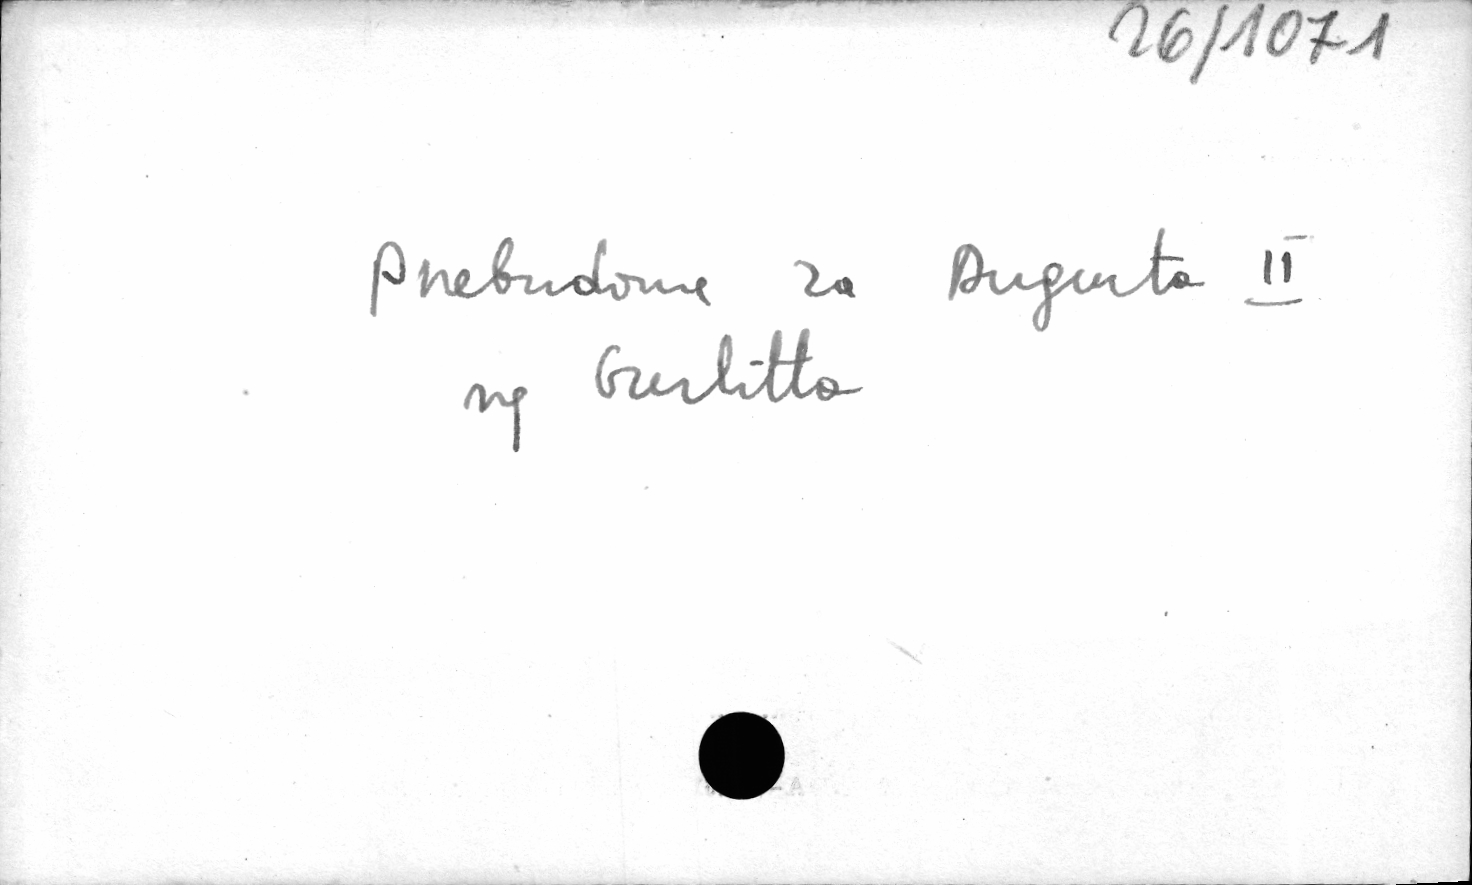 26/1071
Przebudowa za Augusta II
wg Gurlitta